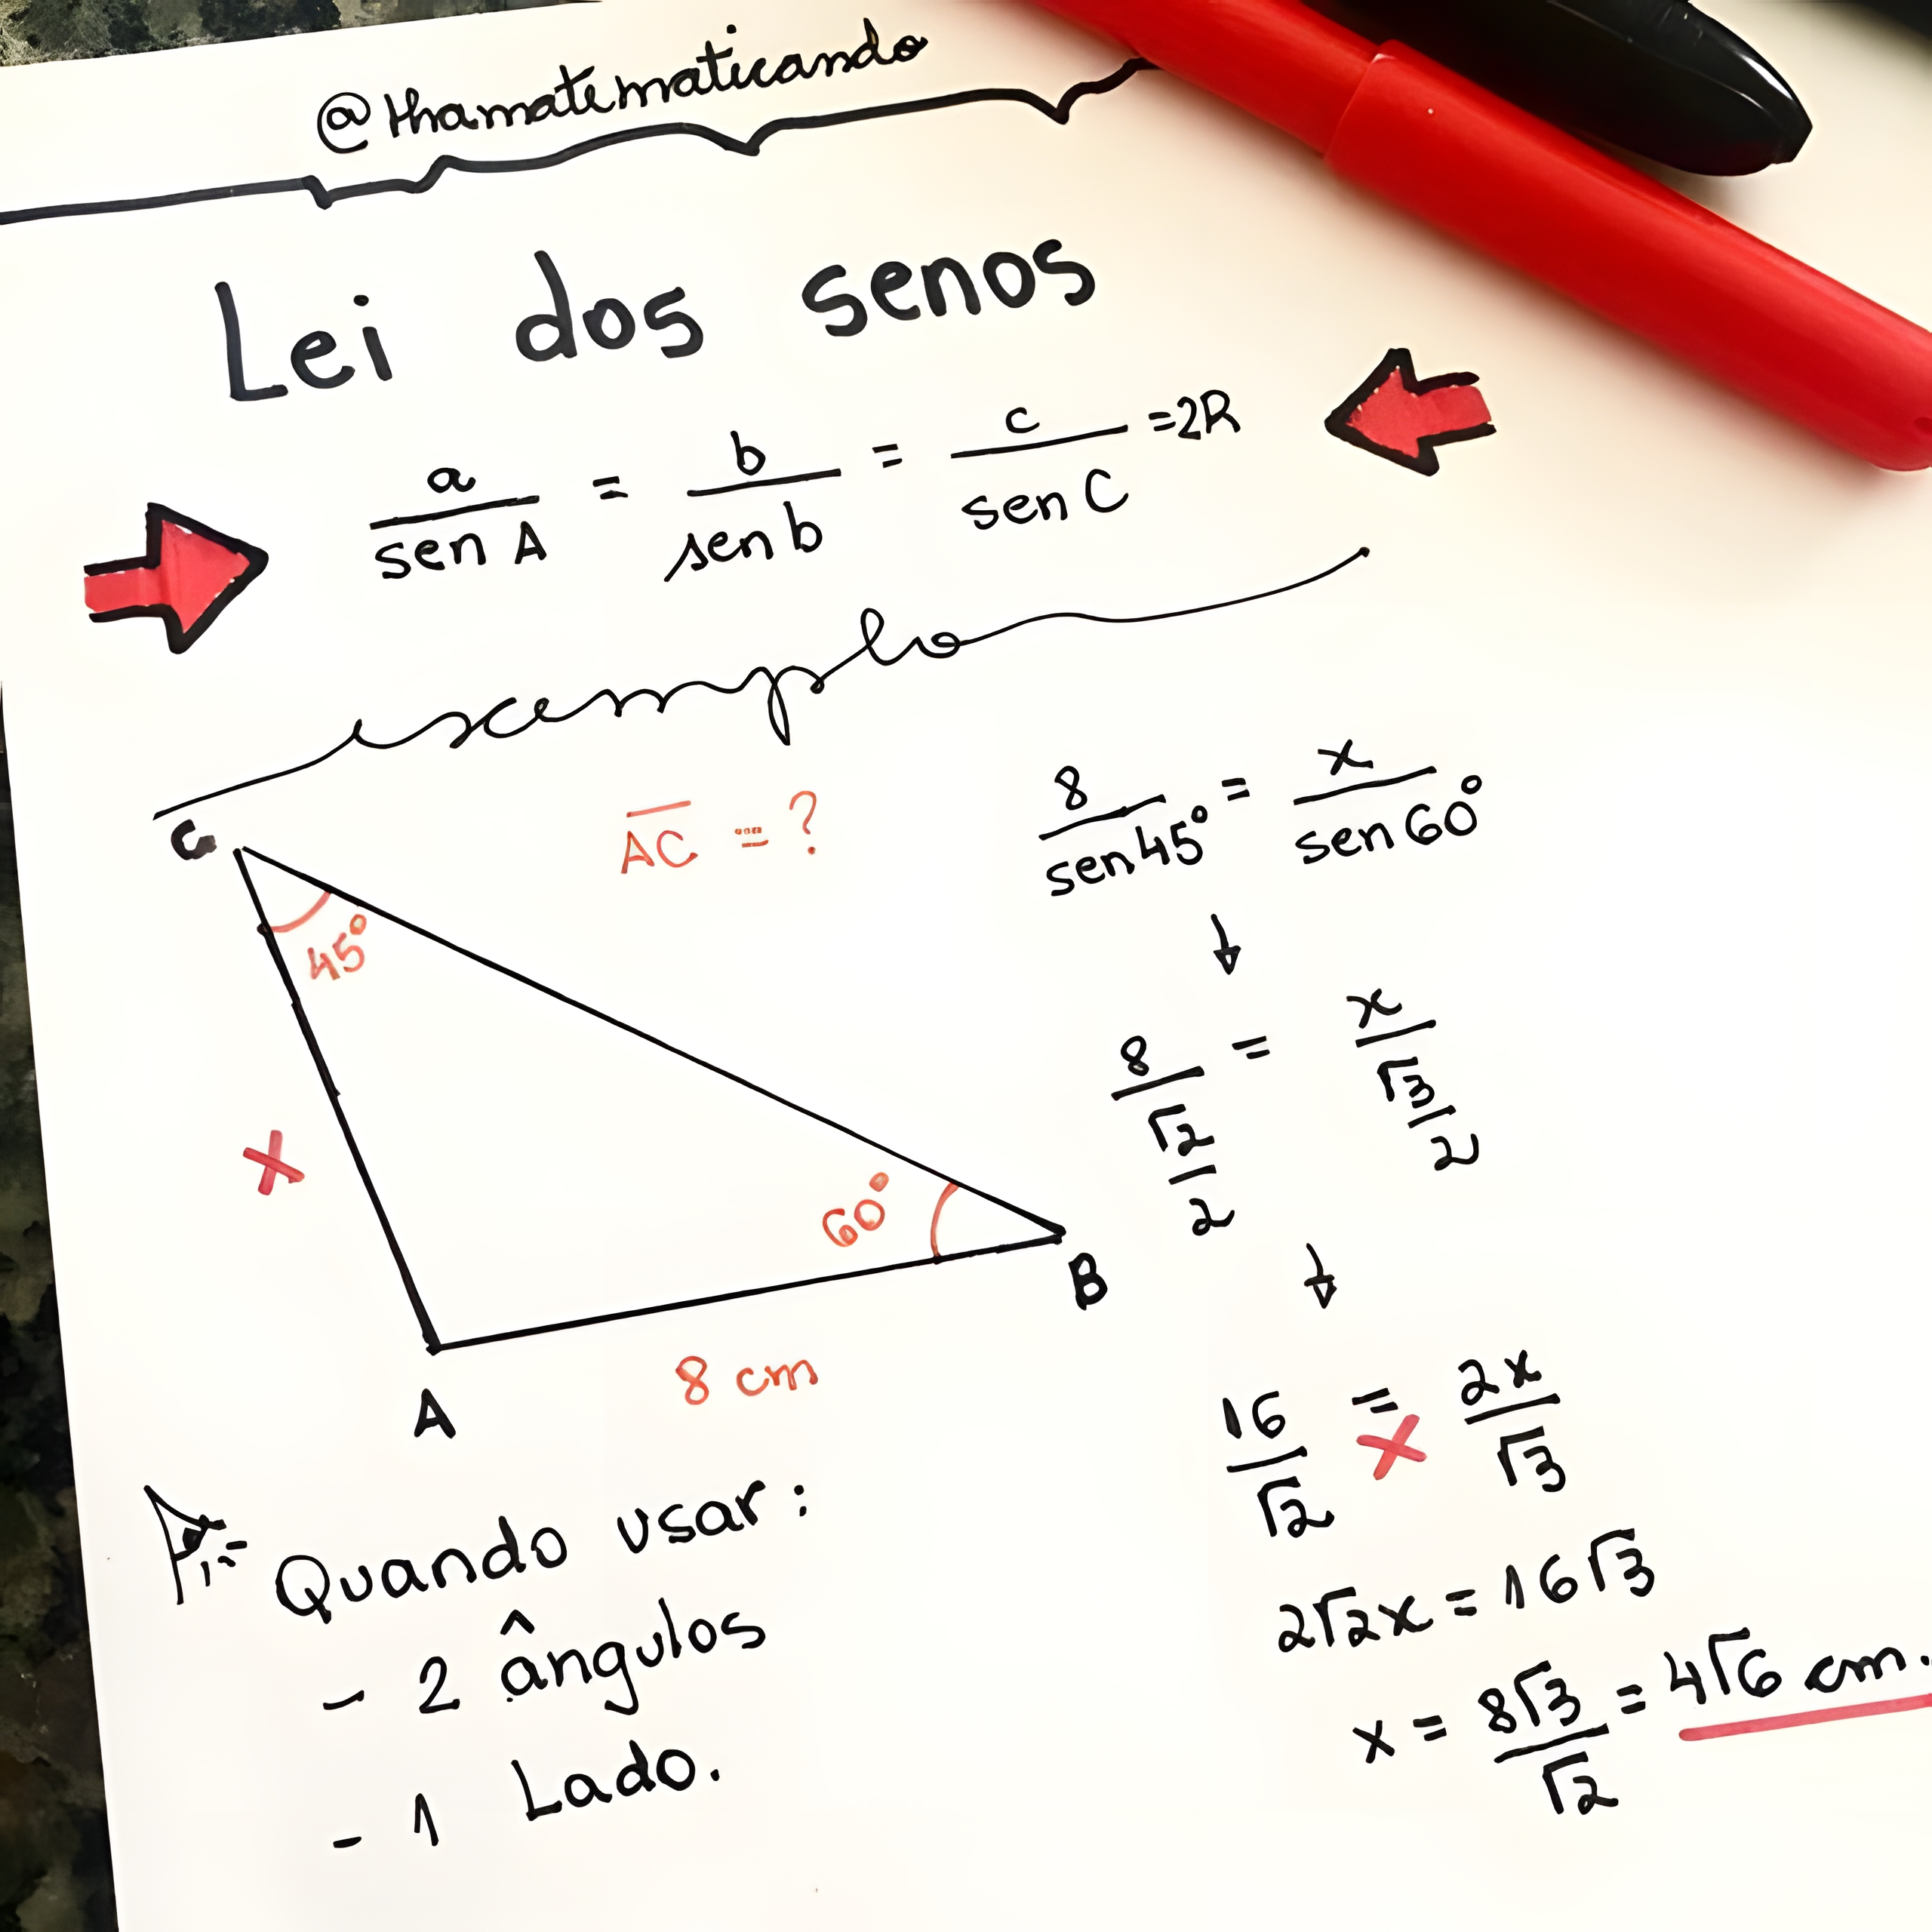 @thamatematicando
Lei dos senos
a/sen A = b/sen b = c/sen C = 2R
exemplo
C
AC = ?
45°
x
60°
B
A
8 cm
8/sen 45° = x/sen 60°
8/√2/2 = x/√3/2
16/√2 = 2x/√3
x
2√2x = 16√3
x = 8√3/√2 = 4√6 cm.
Quando usar:
- 2 ângulos
- 1 Lado.